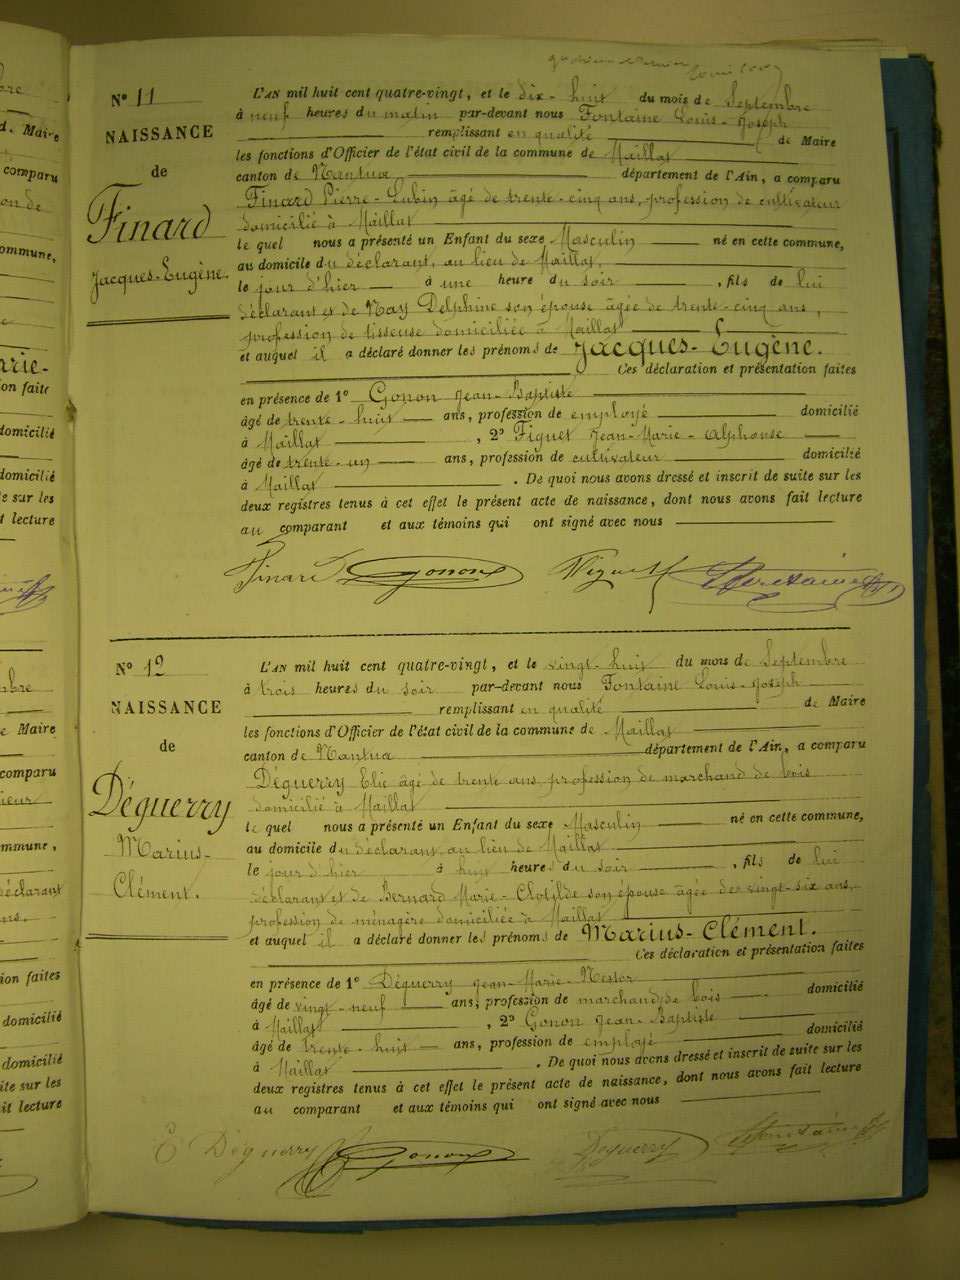 N° 11
NAISSANCE
de
Finard
Jacques-Eugène.
L'AN mil huit cent quatre-vingt, et le dix-huit du mois de Septembre
à neuf heures du matin par-devant nous Fontaine Louis-Joseph
remplissant en qualité de Maire
les fonctions d'Officier de l'état civil de la commune de Maillat
canton de Nantua département de l'Ain, a comparu
Finard Pierre-Lubin âgé de trente-cinq ans, profession de cultivateur
domicilié à Maillat
le quel nous a présenté un Enfant du sexe Masculin né en cette commune,
au domicile du déclarant, au lieu de Maillat,
le jour d'hier à une heure du soir, fils de lui
déclarant et de Nay Delphine son épouse âgée de trente-cinq ans,
profession de tisseuse domiciliée à Maillat
et auquel il a déclaré donner les prénoms de Jacques-Eugène.
Ces déclaration et présentation faites
en présence de 1° Gonon Jean-Baptiste
âgé de trente-huit ans, profession de employé domicilié
à Maillat, 2° Figuet Jean-Marie-Alphonse
âgé de trente-un ans, profession de cultivateur domicilié
à Maillat. De quoi nous avons dressé et inscrit de suite sur les
deux registres tenus à cet effet le présent acte de naissance, dont nous avons fait lecture
au comparant et aux témoins qui ont signé avec nous
Finard Gonon Figuet Fontaine
N° 12
NAISSANCE
de
Déguerry
Marius-
Clément.
L'AN mil huit cent quatre-vingt, et le vingt-huit du mois de Septembre
à trois heures du soir par-devant nous Fontaine Louis-Joseph
remplissant en qualité de Maire
les fonctions d'Officier de l'état civil de la commune de Maillat
canton de Nantua département de l'Ain, a comparu
Déguerry Elie âgé de trente ans, profession de marchand de bois
domicilié à Maillat
le quel nous a présenté un Enfant du sexe Masculin né en cette commune,
au domicile du déclarant, au lieu de Maillat
le jour d'hier à huit heures du soir, fils de lui
déclarant et de Bernard Marie-Clotilde son épouse âgée de vingt-six ans,
profession de ménagère domiciliée à Maillat
et auquel il a déclaré donner les prénoms de Marius-Clément.
Ces déclaration et présentation faites
en présence de 1° Déguerry Jean-Marie-Nestor
âgé de vingt-neuf ans, profession de marchand de bois domicilié
à Maillat, 2° Gonon Jean-Baptiste
âgé de trente-huit ans, profession de employé domicilié
à Maillat. De quoi nous avons dressé et inscrit de suite sur les
deux registres tenus à cet effet le présent acte de naissance, dont nous avons fait lecture
au comparant et aux témoins qui ont signé avec nous
E Déguerry Gonon Déguerry Fontaine